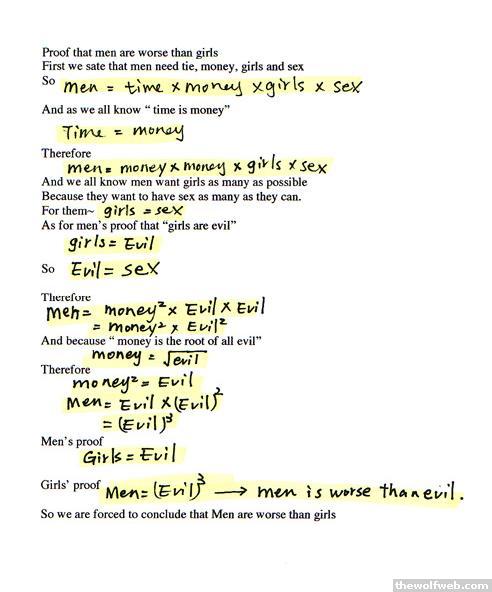 Proof that men are worse than girls
First we sate that men need tie, money, girls and sex
So men = time × money × girls × sex
And as we all know “ time is money”
Time = money
Therefore
men = money × money × girls × sex
And we all know men want girls as many as possible
Because they want to have sex as many as they can.
For them~ girls = sex
As for men’s proof that “girls are evil”
girls = Evil
So Evil = sex
Therefore
Men = money² × Evil × Evil
= money² × Evil²
And because “ money is the root of all evil”
money = √evil
Therefore
money² = Evil
Men = Evil × (Evil)²
= (Evil)³
Men’s proof
Girls = Evil
Girls’ proof Men = (Evil)³ → men is worse than evil.
So we are forced to conclude that Men are worse than girls
thewolfweb.com